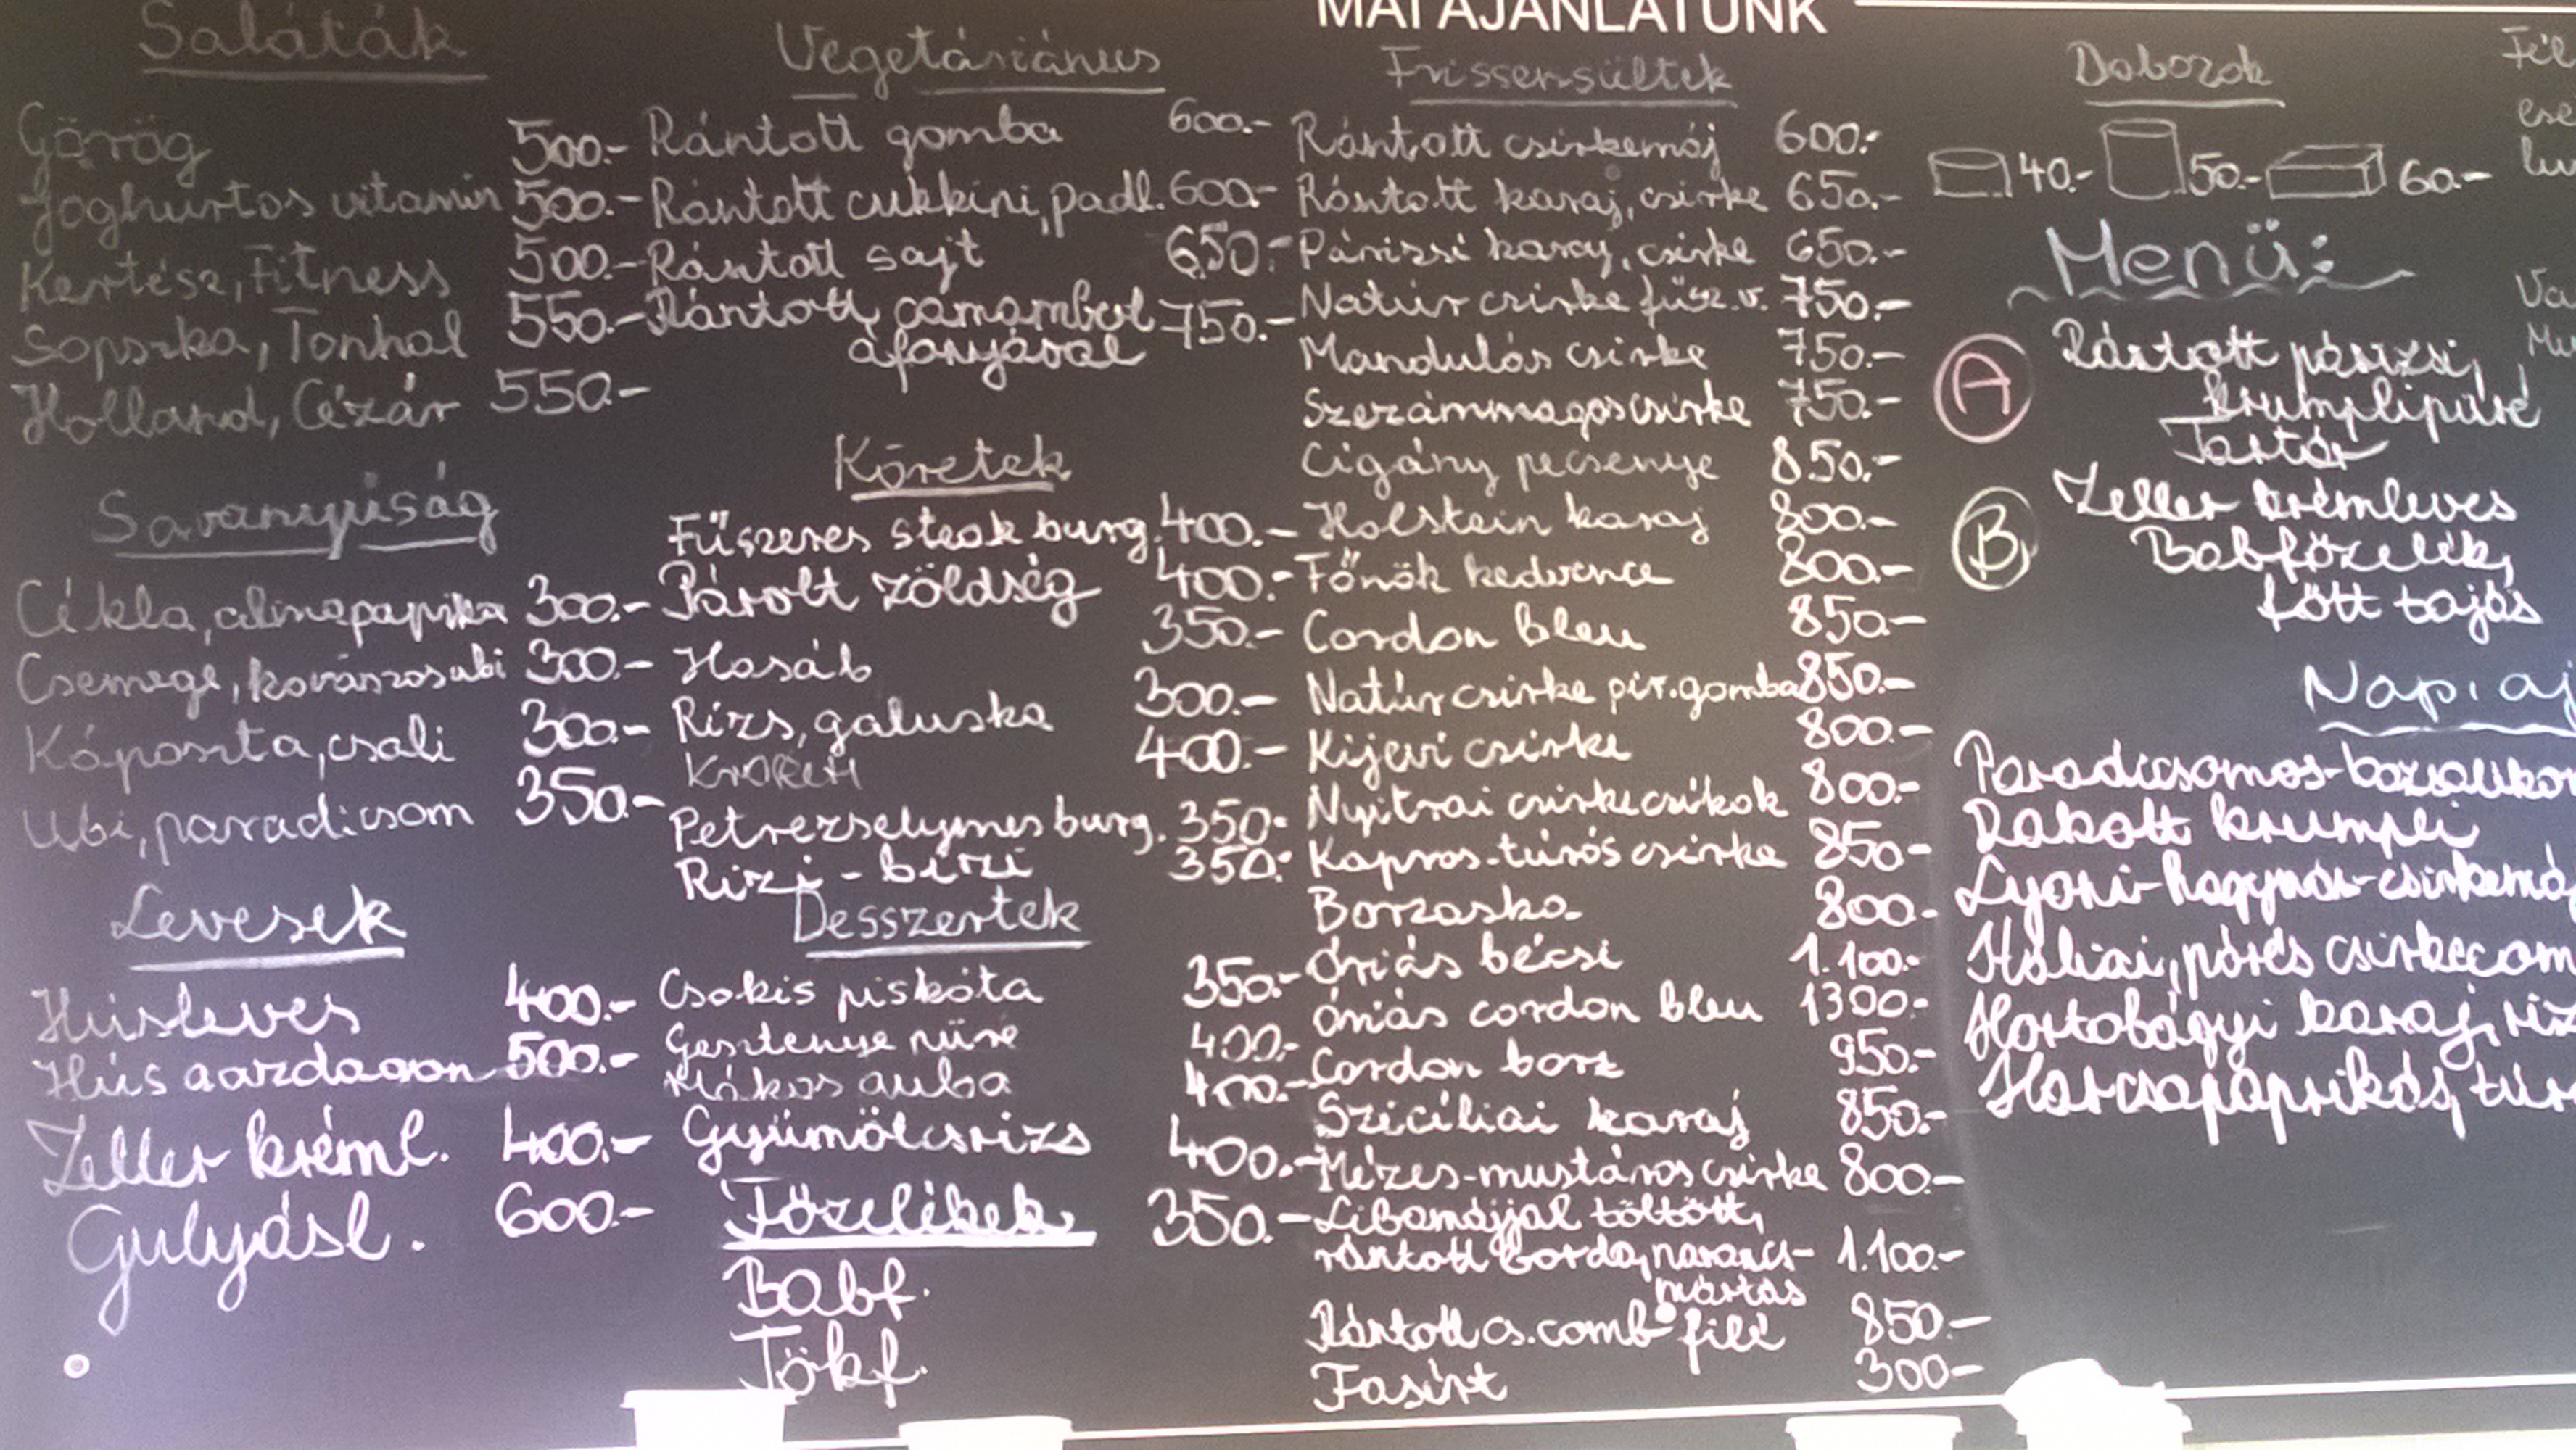 MAI AJÁNLATUNK
Saláták
Görög 500.-
Joghurtos vitamin 500.-
Kertész, Fitness 500.-
Sopszka, Tonhal 550.-
Holland, Cézár 550.-
Savanyúság
Cékla, almapaprika 300.-
Csemege, kovászosubi 300.-
Káposzta, csali 300.-
Ubi, paradicsom 350.-
Levesek
Húsleves 400.-
Hús gazdagon 500.-
Zeller kréml. 400.-
Gulyásl. 600.-
Vegetáriánus
Rántott gomba 600.-
Rántott cukkini, padl. 600.-
Rántott sajt 650.-
Rántott camambert 750.-
áfonyával
Köretek
Fűszeres steak burg. 400.-
Párolt zöldség 400.-
Hasáb 350.-
Rizs, galuska 300.-
Krokett 400.-
Petrezselymes burg. 350.-
Rizi-bizi 350.-
Desszertek
Csokis piskóta 350.-
Gesztenye püré 400.-
Mákos guba 400.-
Gyümölcsrizs 400.-
Főzelékek 350.-
Babf.
Tökf.
Frissensültek
Rántott csirkemáj 600.-
Rántott karaj, csirke 650.-
Párizsi karaj, csirke 650.-
Natúr csirke fűsz.v. 750.-
Mandulás csirke 750.-
Szezámmagos csirke 750.-
Cigány pecsenye 850.-
Holstein karaj 800.-
Főnök kedvence 800.-
Cordon bleu 850.-
Natúr csirke pir.gomba 850.-
Kijevi csirke 800.-
Nyitrai csirkecsíkok 800.-
Kapros-túrós csirke 850.-
Borzaska 800.-
Óriás bécsi 1.100.-
Óriás cordon bleu 1300.-
Cordon borz 950.-
Szicíliai karaj 850.-
Mézes-mustáros csirke 800.-
Libamájjal töltött,
rántott borda, narancs- 1.100.-
mártás
Rántott cs.comb filé 850.-
Fasírt 300.-
Dobozok
40.- 50.- 60.-
Menü:
A Rántott párizsi,
krumplipüré
Tartár
B Zeller krémleves
Babfőzelék,
főtt tojás
Napi aj
Paradicsomos-bazsalikom
Rakott krumpli
Lyoni-hagymás-csirkemá
Hortobágyi karaj, riz
Harcsapaprikás, túr